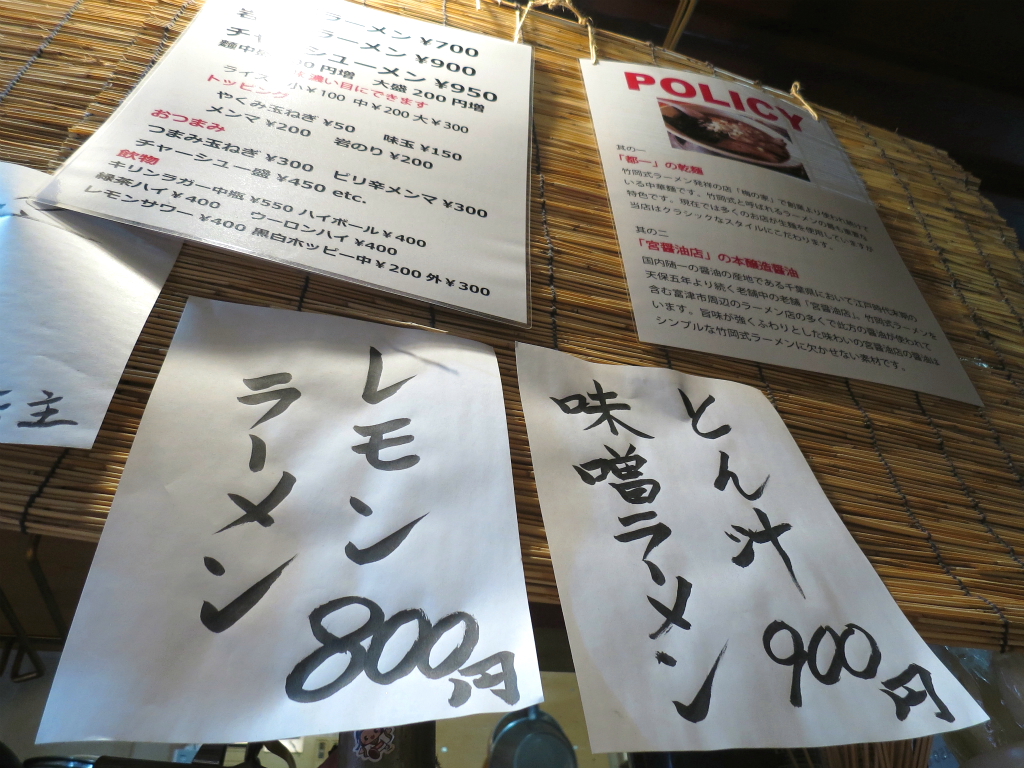 ラーメン ¥700
ラーメン ¥900
シューメン ¥950
円増 大盛 200 円増
濃い目にできます
ライス 小¥100 中¥200 大¥300
トッピング
やくみ玉ねぎ ¥50 味玉 ¥150
メンマ ¥200 岩のり ¥200
おつまみ
つまみ玉ねぎ ¥300 ピリ辛メンマ ¥300
チャーシュー盛 ¥450 etc.
飲物
キリンラガー中瓶 ¥550 ハイボール ¥400
緑茶ハイ ¥400 ウーロンハイ ¥400
レモンサワー ¥400 黒白ホッピー中 ¥200 外 ¥300
POLICY
其の一
「都一」の乾麺
竹岡式ラーメン発祥の店「梅の家」で創業より使われ続けて
いる中華麺です。竹岡式と呼ばれるラーメンの最も重要な
特色です。現在では多くのお店が生麺を使用していますが
当店はクラシックなスタイルにこだわります。
其の二
「宮醤油店」の本醸造醤油
国内随一の醤油の産地である千葉県において江戸時代末期の
天保五年より続く老舗中の老舗「宮醤油店」。竹岡式ラーメンを
含む富津市周辺のラーメン店の多くで此方の醤油が使われて
います。旨味が強くふわりとした味わいの宮醤油店の醤油は
シンプルな竹岡式ラーメンに欠かせない素材です。
主
レモン
ラーメン
800円
とん汁
味噌ラーメン
900円